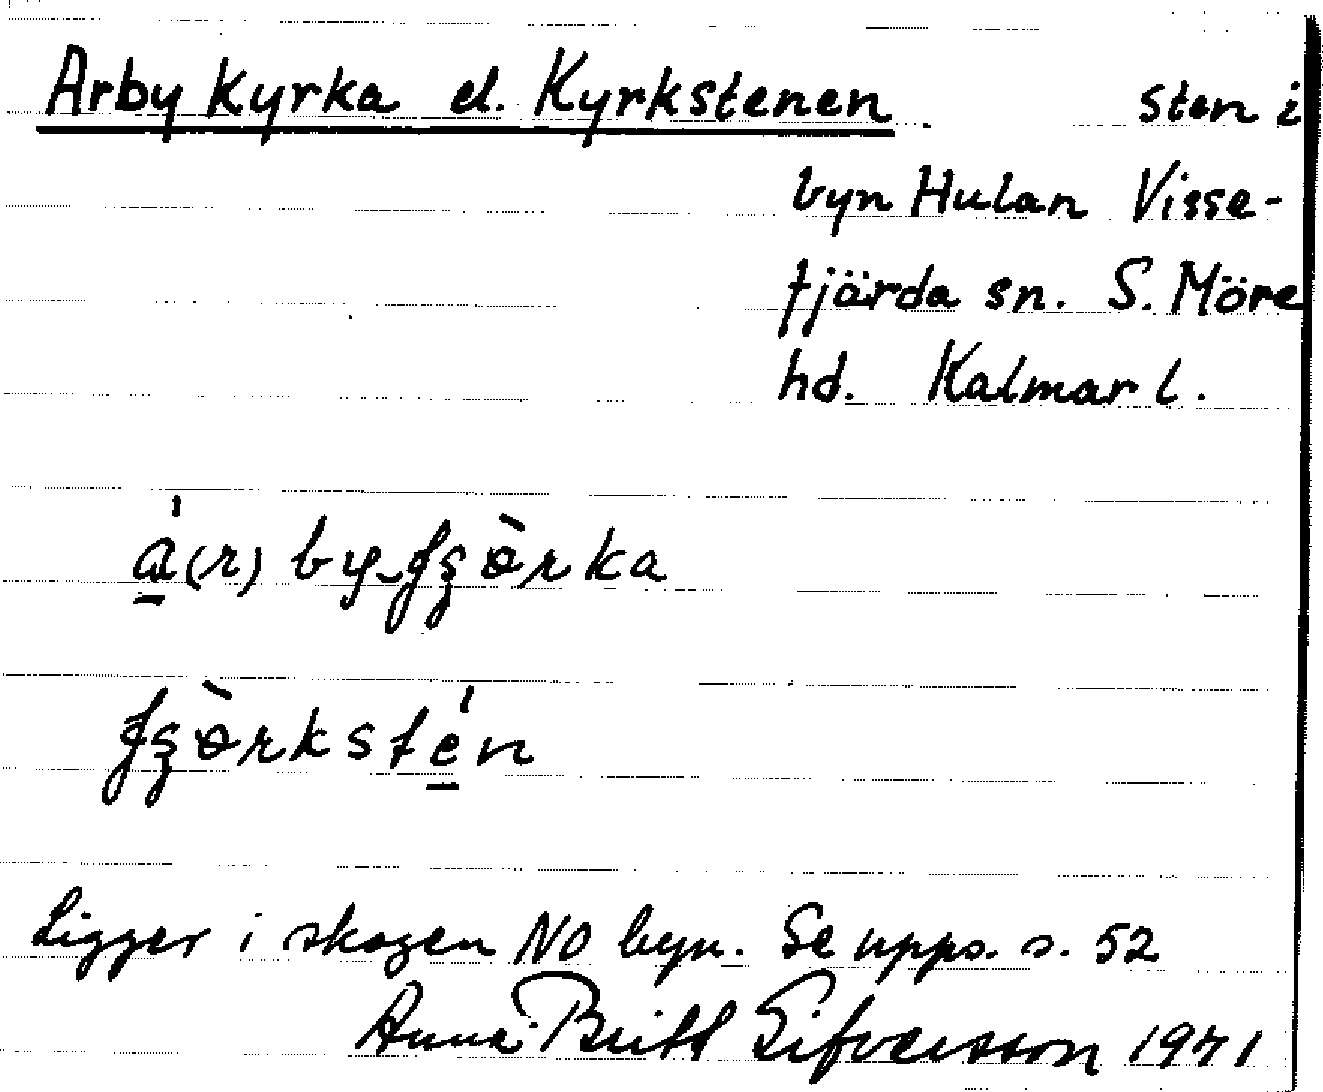 Arby Kyrka el. Kyrkstenen sten i
byn Hulan Visse-
fjärda sn. S. Möre
hd. Kalmar l.
Ligger i skogen NO byn. Se upps. s. 52
Anna-Britt Sifversson 1971